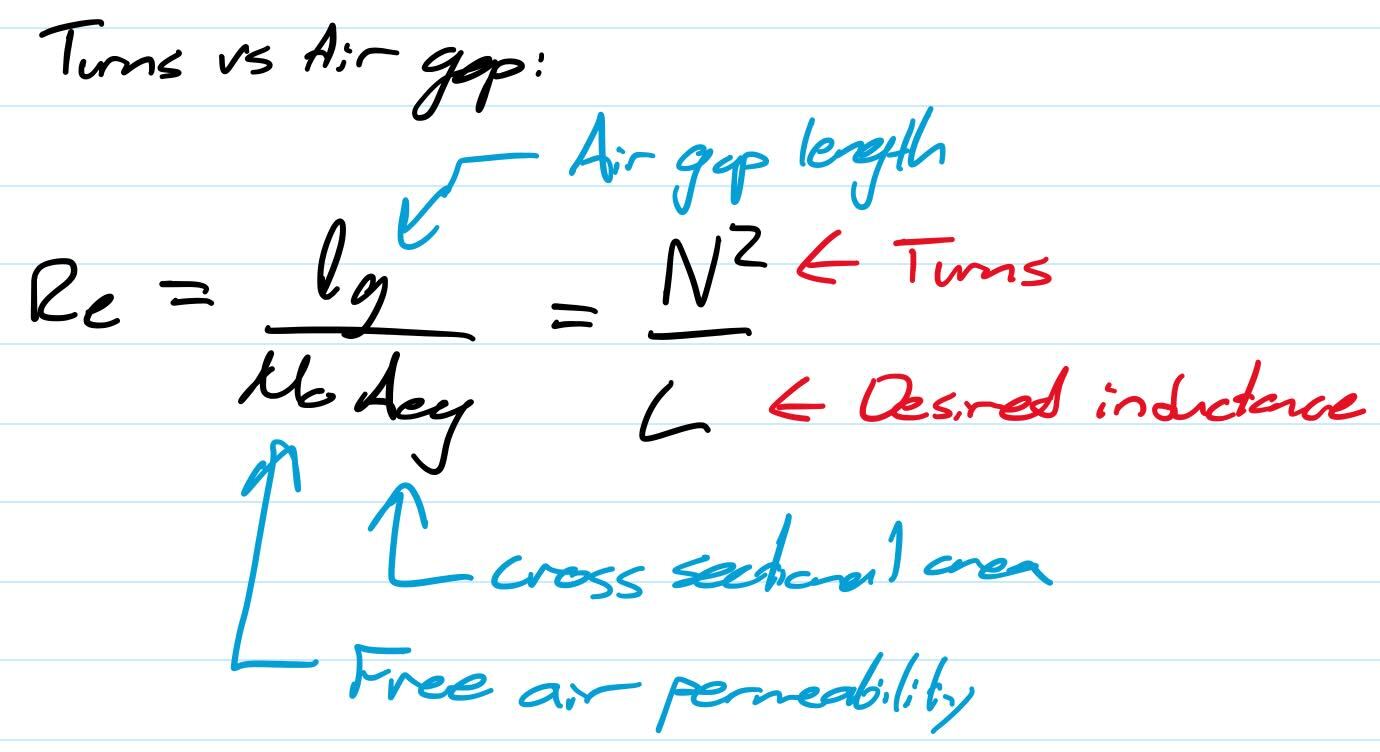 Turns vs Air gap:
Air gap length
Re = lg / μo Aeg = N² / L
← Turns
← Desired inductance
cross sectional area
Free air permeability